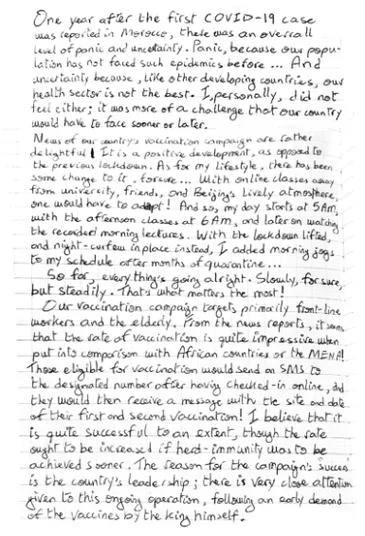 One year after the first COVID-19 case
was reported in Morocco, there was an overall
level of panic and uncertainty. Panic, because our popu-
lation has not faced such epidemics before... And
uncertainty because, like other developing countries, our
health sector is not the best. I, personally, did not
feel either; it was more of a challenge that our country
would have to face sooner or later.
News of our country's vaccination campaign are rather
delightful! It is a positive development, as opposed to
the previous lockdown. As for my lifestyle, there has been
some change to it, for sure... With online classes away
from university, friends, and Beijing's lively atmosphere,
one would have to adapt! And so, my day starts at 5AM,
with the afternoon classes at 6AM, and later on watching
the recorded morning lectures. With the lockdown lifted,
and night-curfew in place instead, I added morning jogs
to my schedule after months of quarantine...
So far, everything's going alright. Slowly, for sure,
but steadily. That's what matters the most!
Our vaccination campaign targets primarily front-line
workers and the elderly. From the news reports, it seems
that the rate of vaccination is quite impressive when
put into comparison with African countries or the MENA!
Those eligible for vaccination would send an SMS to
the designated number after having checked-in online, and
they would then receive a message with the site and date
of their first and second vaccination! I believe that it
is quite successful to an extent, though the rate
ought to be increased if herd-immunity was to be
achieved sooner. The reason for the campaign's success
is the country's leadership; there is very close attention
given to this ongoing operation, following an early demand
of the vaccines by the King himself.